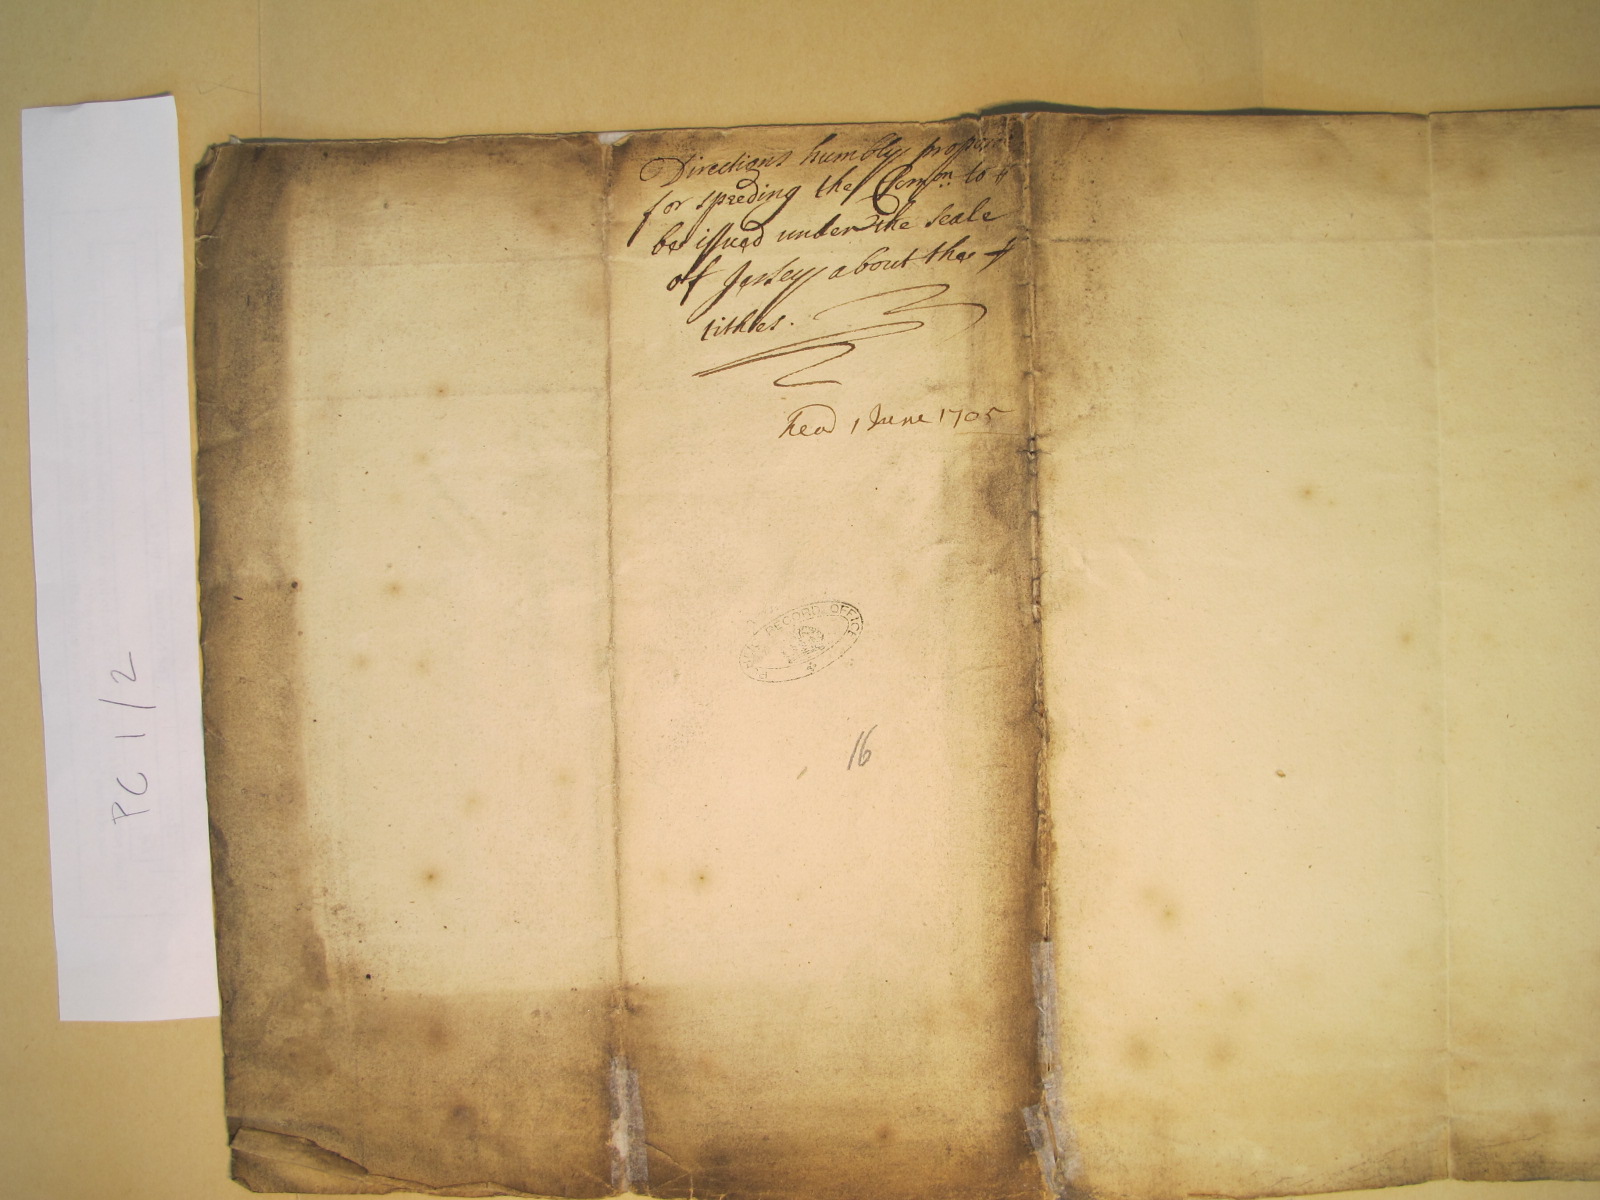 Directions humbly propos'd
for speeding the Com:on to
be issued under the seale
of Jersey about the
tithes.
Read 1 June 1705
PUBLIC RECORD OFFICE
16
PC 1/2